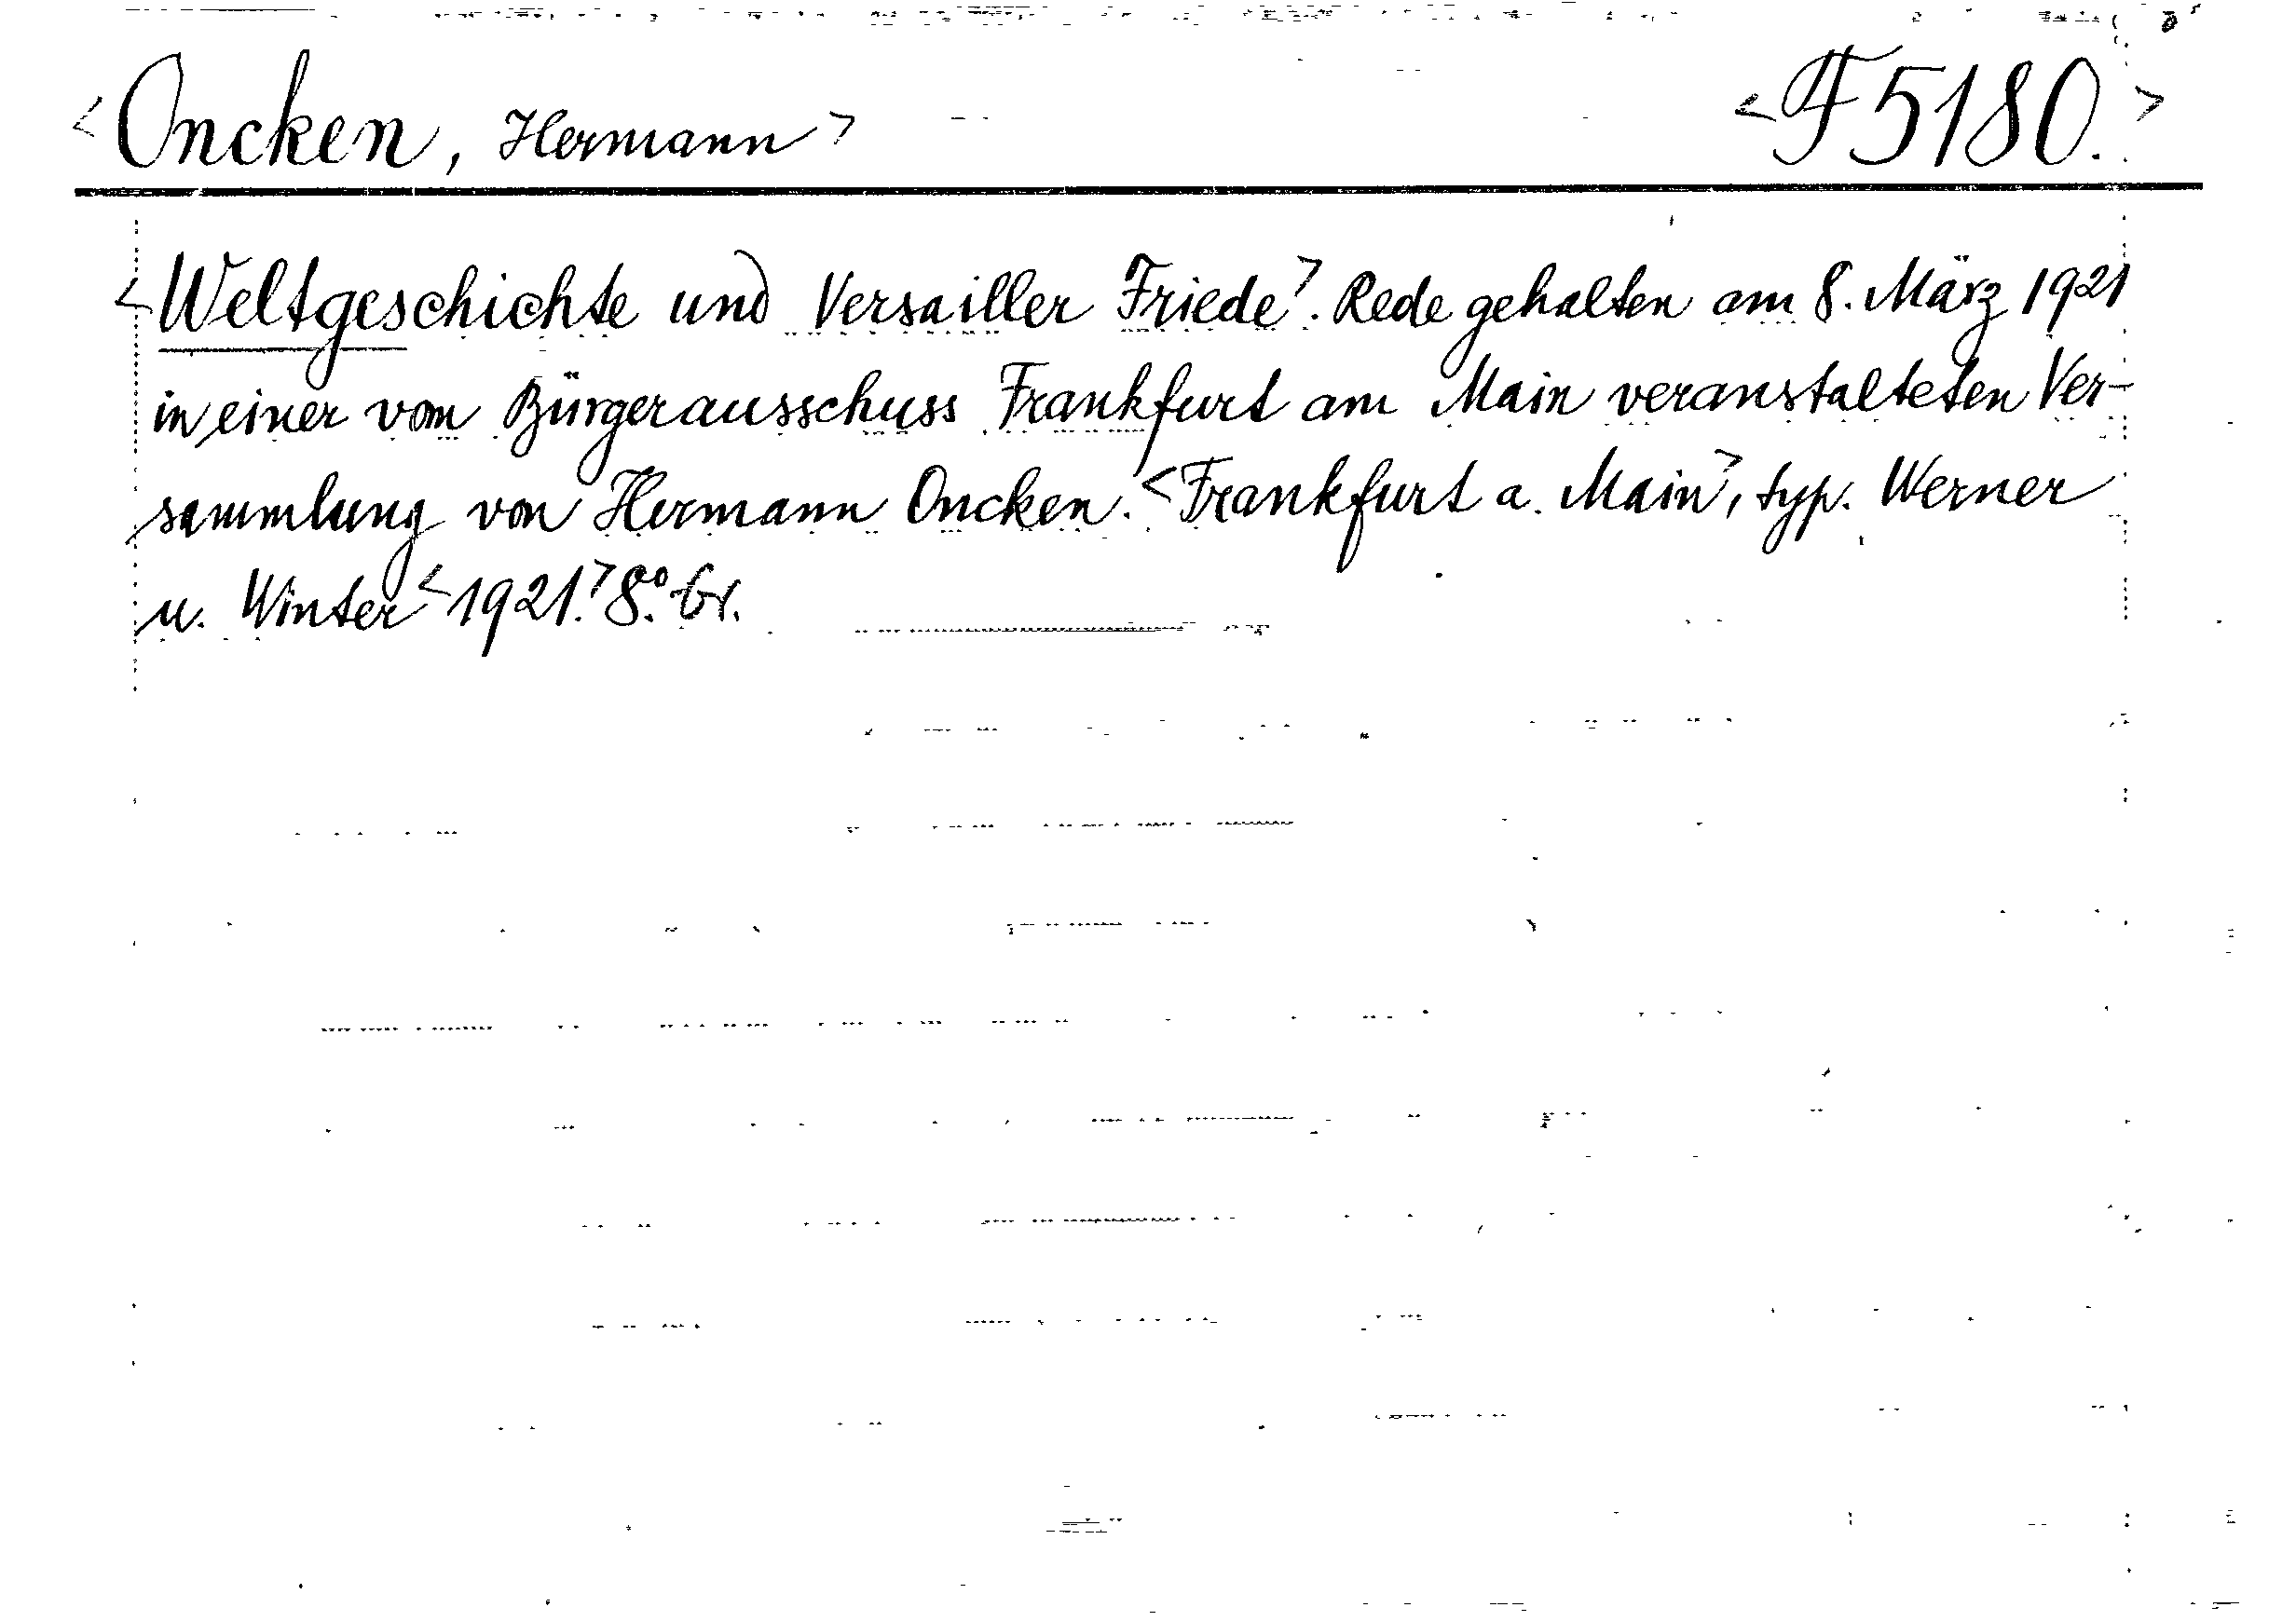 <Oncken, Hermann> <F 5180.>
<Weltgeschichte und Versailler Friede>. Rede gehalten am 8. März 1921
in einer vom Bürgerausschuss Frankfurt am Main veranstalteten Ver-
sammlung von Hermann Oncken. <Frankfurt a. Main>, typ. Werner
u. Winter <1921.> 8.° br.